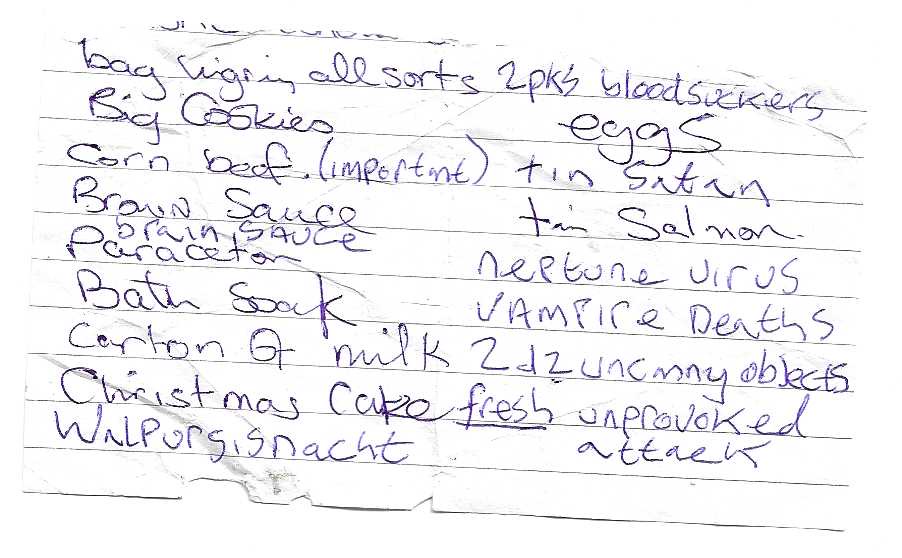 bag liqriy allsorts 2pks bloodsuckers
Big Cookies eggs
Corn beef. (important) tin Satan
Brown Sauce tin Salmon.
brain SAUCE
Paraceton neptune virus
Bath Soak VAMPIre Deaths
Carton Of milk 2d2 uncanny objects
Christmas Cake fresh unprovoked
WALPURgisnacht attack